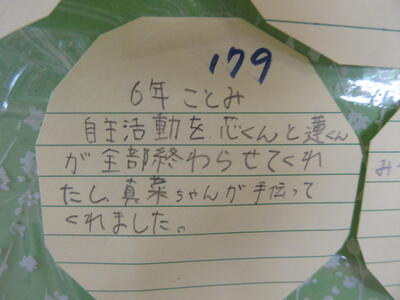 179
6年 ことみ
自主活動を、芯くんと蓮くん
が全部終わらせてくれ
たし、真菜ちゃんが手伝って
くれました。